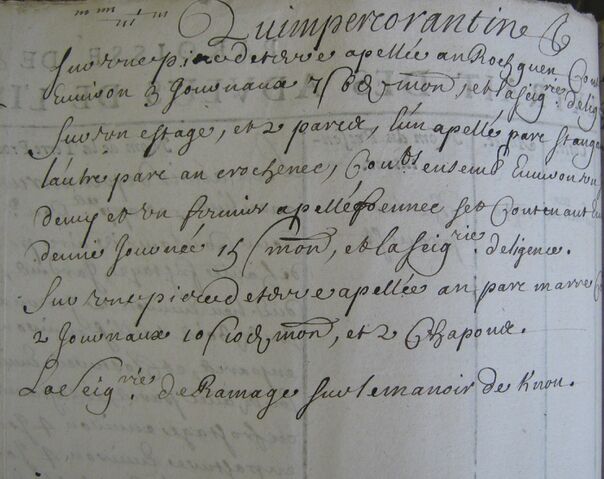 Quimpercorantine
Sur une piece de terre apellée an Rochguen Cont
Environ 3 Journaux 7 s 6 d mon, et la Seigrie de lige
Sur son estage, et 2 parcs, l'un apellé parc Stang
l'autre parc an crochenec, Contts ensemb Environ un
demy et un fermier apellé fennec set Contenant
demie Journée 15 s mon, et la Seigrie de ligence.
Sur une piece de terre apellée an parc marre
2 Journaux 10 s 10 d mon, et 2 Chapons.
La Seigrie de Ramage sur le manoir de Knou.